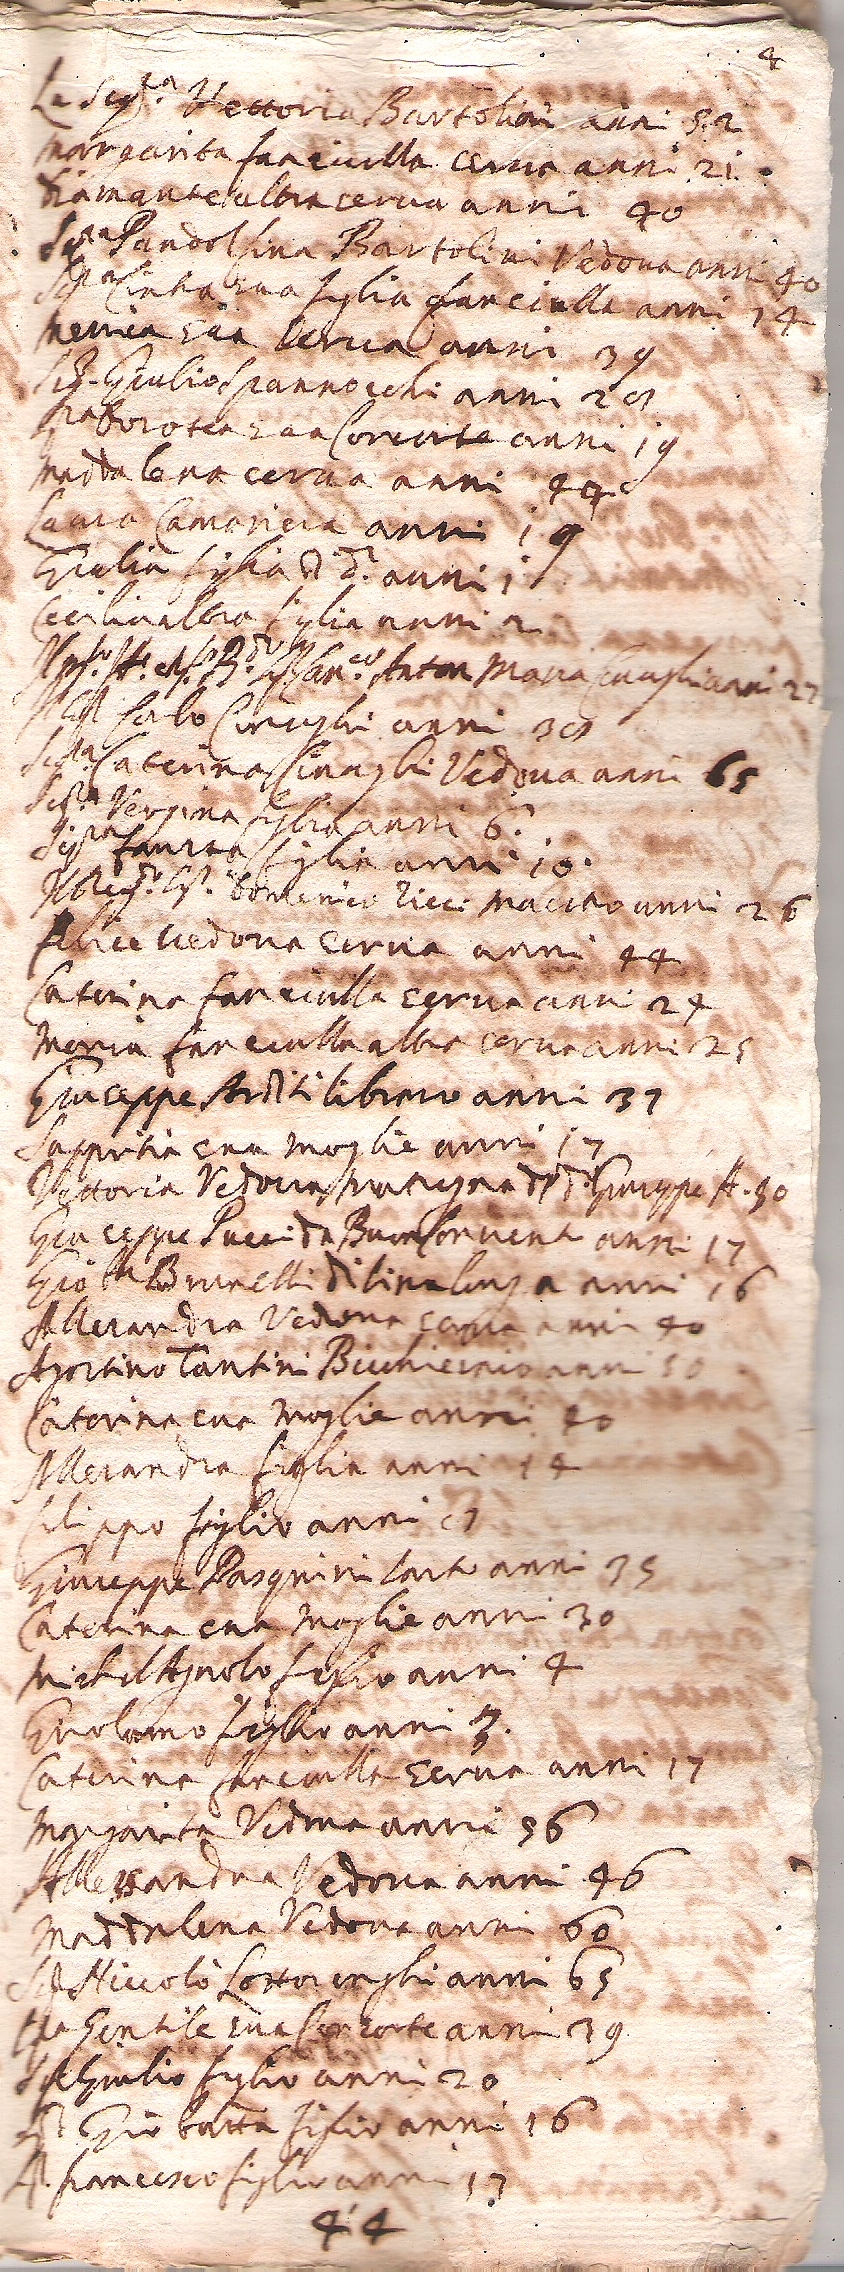 4
La Sig.ra Vettoria Bartolini anni 52
Margarita fanciulla cerva anni 21
Diamante altra cerva anni 40
Sig.ra Pandolfina Bartolini Vedova anni 40
Sig.ra Cintia sua figlia fanciulla anni 14
Menica sua Cerva anni 39
Sig. Giulio Spannocchi anni
Sua Consorte anni 19
Maddalena cerva anni
Laura Camoriera anni 19
Giulia figlia di d. anni 1
Cecilia altra figlia anni 2
Anton Maria Cinughi anni 27
Carlo Cinughi anni
Sig.ra Caterina Cinughi Vedova anni 65
Sig.ra Vergina figlia anni 6
Sig.ra Laura figlia anni 10
Domenico Ricci Maestro anni 26
Felice Vedova cerva anni 44
Caterina fanciulla cerva anni 24
Maria fanciulla altra cerva anni 25
Giuseppe Arditi libraro anni 37
cua moglie anni 17
Vettoria Vedova Matrigna di d. Giuseppe A. 50
Giuseppe Pucci da Buonconvento anni 17
Gio Brunelli di anni 16
Allesandra Vedova cerva anni 40
Agostino Tantini Bicchieraio anni 50
Caterina cua Moglie anni 40
Allesandra figlia anni 14
Filippo figlio anni
Giuseppe Pasquini Sarto anni 35
Caterina cua Moglie anni 30
MichelAgnolo figlio anni 4
Girolamo figlio anni 3.
Caterina fanciulla Serva anni 17
Margarita Vedova anni 56
Allessandra Vedova anni 46
Maddalena Vedova anni 60
Sig. Niccolò Lottorenghi anni 65
Gentile sua Consorte anni 39
Giulio figlio anni 20
Gio batta figlio anni 16
francesco figlio anni 13
44